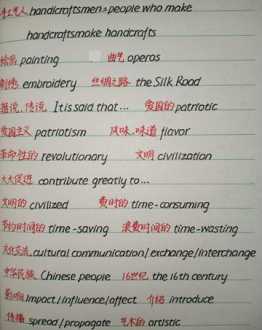 手工艺人 handicraftsmen=people who make
handicraftsmake handcrafts
绘画 painting 曲艺 operas
刺绣 embroidery 丝绸之路 the Silk Road
据说,传说 It is said that... 爱国的 patriotic
爱国主义 patriotism 风味,味道 flavor
革命性的 revolutionary 文明 civilization
大大促进 contribute greatly to...
文明的 civilized 费时的 time-consuming
节约时间的 time-saving 浪费时间的 time-wasting
文化交流 cultural communication/exchange/interchange
中华民族 Chinese people 16世纪 the 16th century
影响 impact/influence/affect 介绍 introduce
传播 spread/propagate 艺术的 artistic